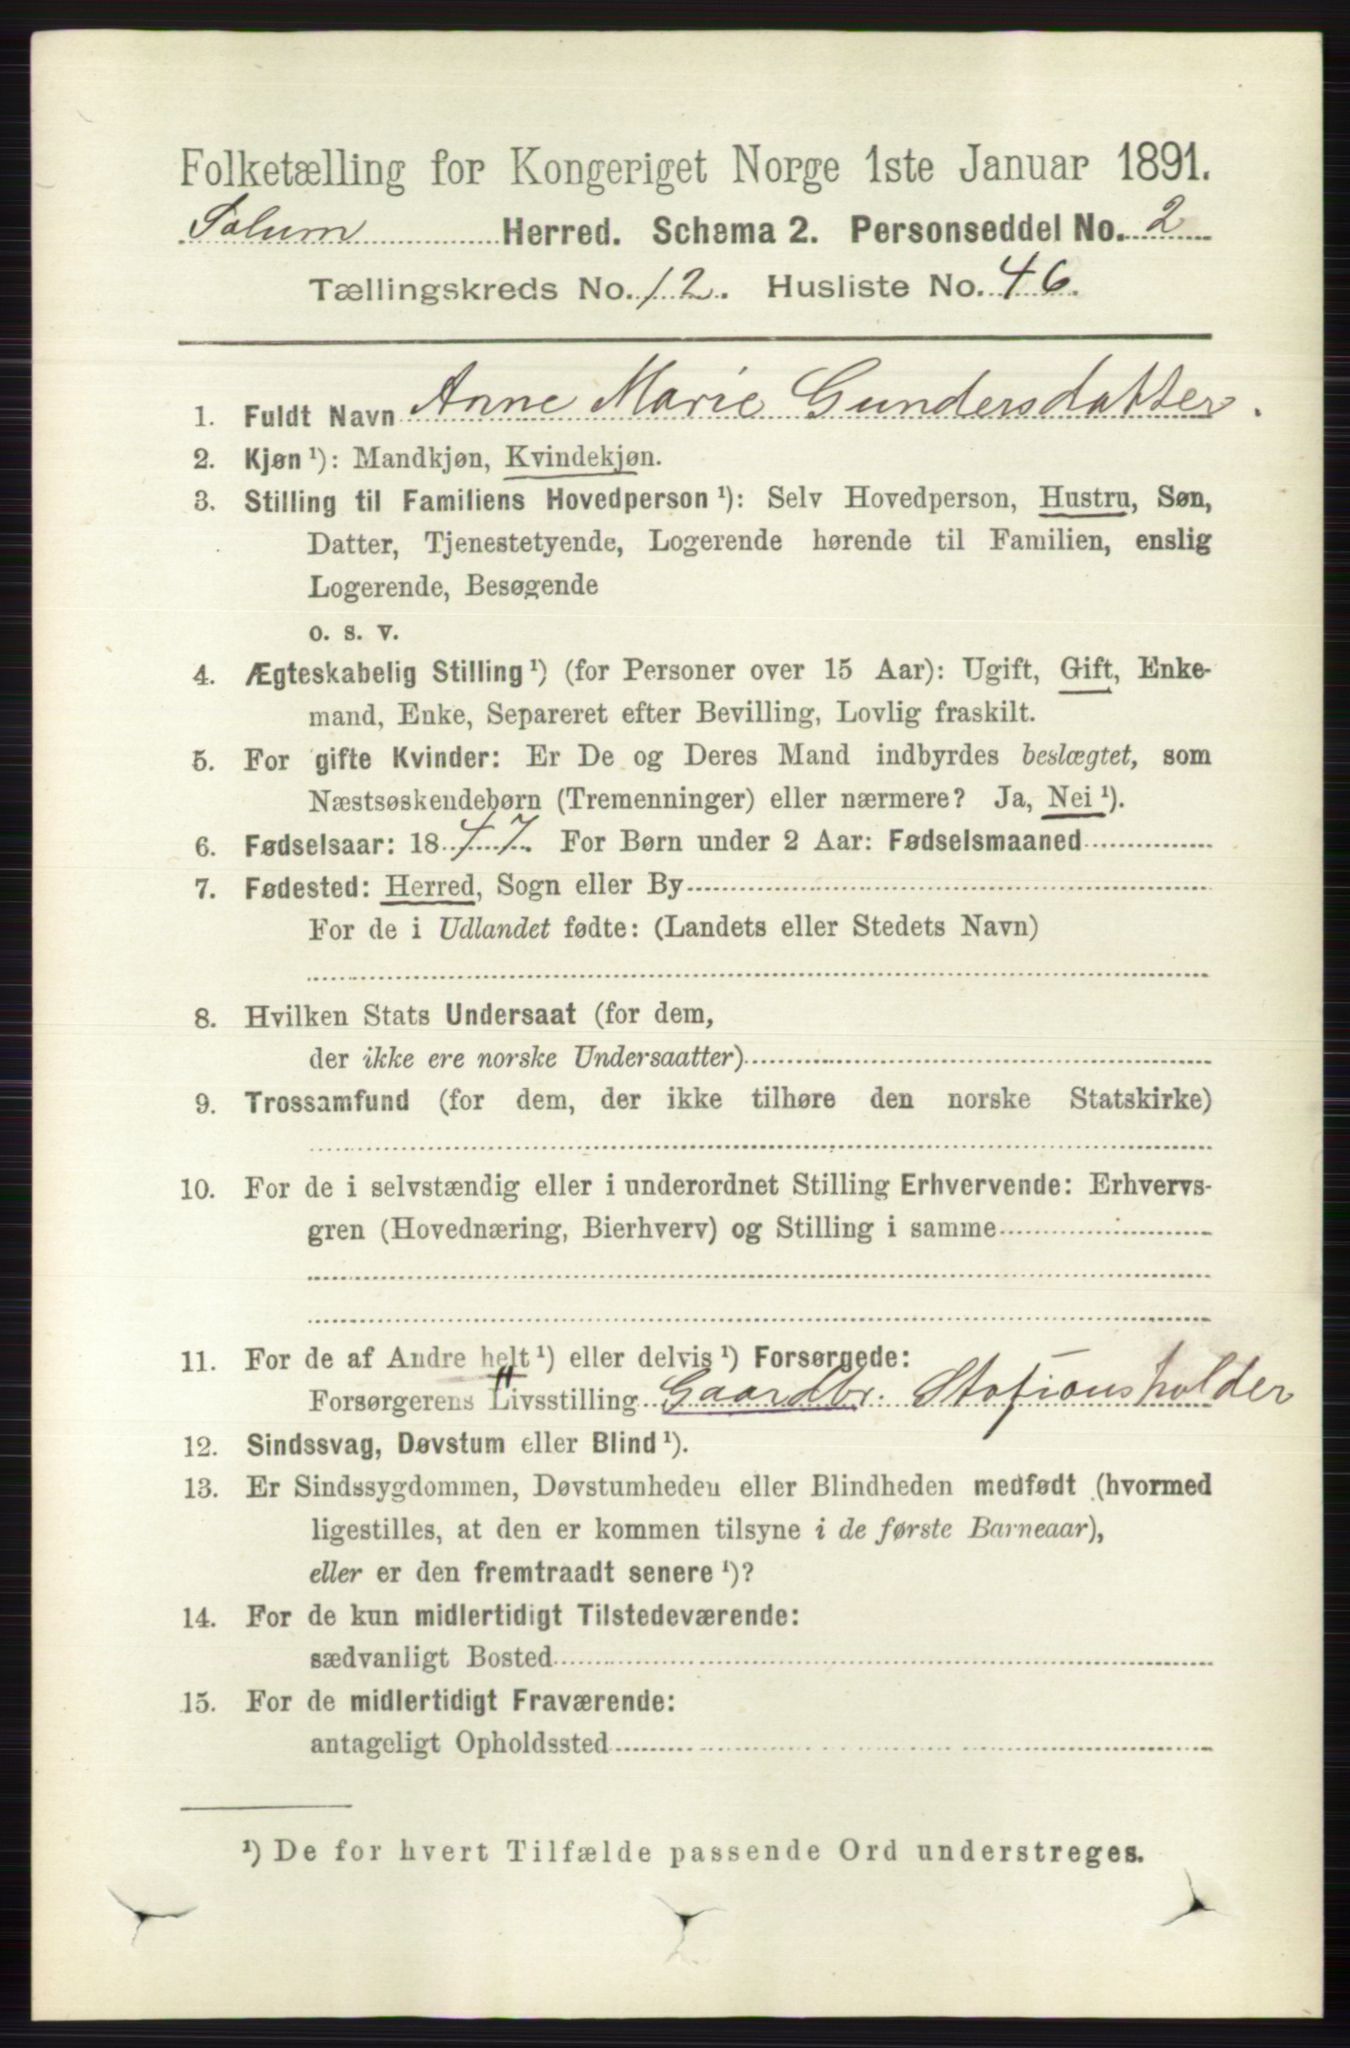 Folketælling for Kongeriget Norge 1ste Januar 1891.
Solum Herred. Schema 2. Personseddel No. 2
Tællingskreds No. 12. Husliste No. 46.
1. Fuldt Navn Anne Marie Gundersdatter.
2. Kjøn ¹): Mandkjøn, Kvindekjøn.
3. Stilling til Familiens Hovedperson ¹): Selv Hovedperson, Hustru, Søn,
Datter, Tjenestetyende, Logerende hørende til Familien, enslig
Logerende, Besøgende
o. s. v.
4. Ægteskabelig Stilling ¹) (for Personer over 15 Aar): Ugift, Gift, Enke-
mand, Enke, Separeret efter Bevilling, Lovlig fraskilt.
5. For gifte Kvinder: Er De og Deres Mand indbyrdes beslægtet, som
Næstsøskendebørn (Tremenninger) eller nærmere? Ja, Nei ¹).
6. Fødselsaar: 1847. For Børn under 2 Aar: Fødselsmaaned
7. Fødested: Herred, Sogn eller By
For de i Udlandet fødte: (Landets eller Stedets Navn)
8. Hvilken Stats Undersaat (for dem,
der ikke ere norske Undersaatter)
9. Trossamfund (for dem, der ikke tilhøre den norske Statskirke)
10. For de i selvstændig eller i underordnet Stilling Erhvervende: Erhvervs-
gren (Hovednæring, Bierhverv) og Stilling i samme
11. For de af Andre helt ¹) eller delvis ¹) Forsørgede:
Forsørgerens Livsstilling Gaardbr. Stationsholder
12. Sindssvag, Døvstum eller Blind ¹).
13. Er Sindssygdommen, Døvstumheden eller Blindheden medfødt (hvormed
ligestilles, at den er kommen tilsyne i de første Barneaar),
eller er den fremtraadt senere ¹)?
14. For de kun midlertidigt Tilstedeværende:
sædvanligt Bosted
15. For de midlertidigt Fraværende:
antageligt Opholdssted
¹) De for hvert Tilfælde passende Ord understreges.